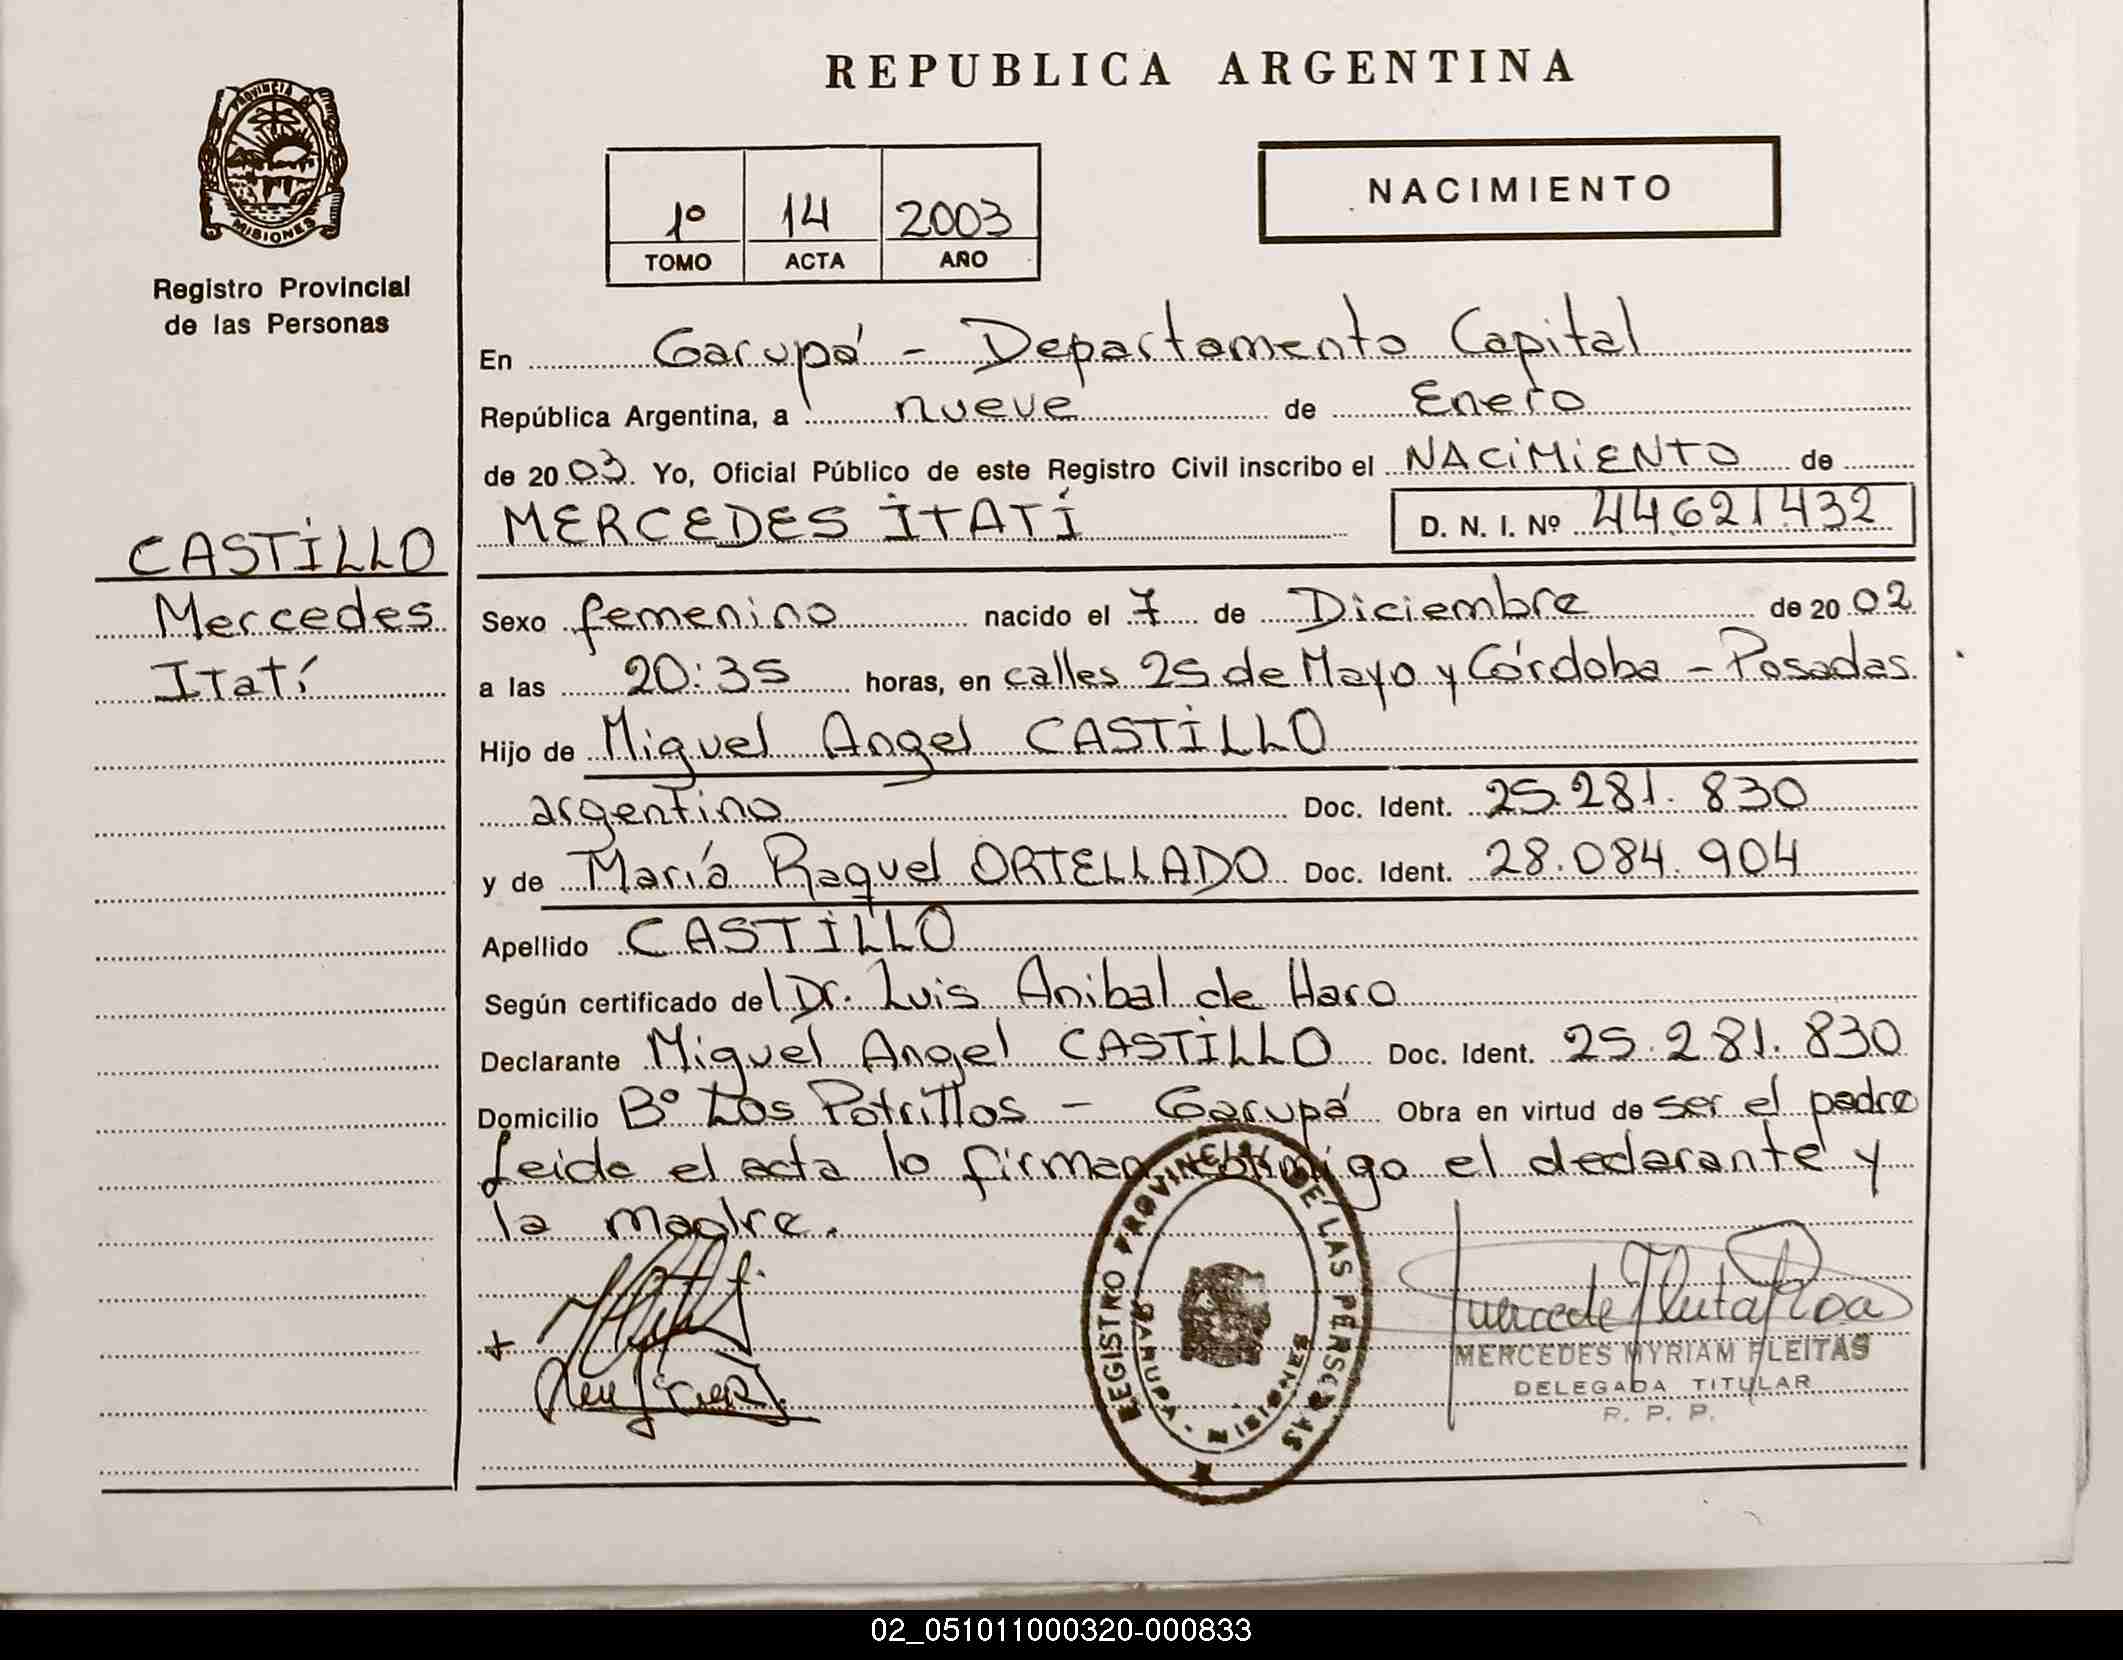 REPUBLICA ARGENTINA
PROVINCIA DE
MISIONES
Registro Provincial
de las Personas
1º 14 2003
TOMO ACTA AÑO
NACIMIENTO
En Garupá - Departamento Capital
República Argentina, a nueve de Enero
de 2003. Yo, Oficial Público de este Registro Civil inscribo el NACIMIENTO de
MERCEDES ITATÍ D. N. I. Nº 44621432
CASTILLO
Mercedes
Itatí
Sexo femenino nacido el 7 de Diciembre de 2002
a las 20:35 horas, en calles 25 de Mayo y Córdoba - Posadas
Hijo de Miguel Angel CASTILLO
argentino Doc. Ident. 25.281.830
y de María Raquel ORTELLADO Doc. Ident. 28.084.904
Apellido CASTILLO
Según certificado del Dr. Luis Anibal de Haro
Declarante Miguel Angel CASTILLO Doc. Ident. 25.281.830
Domicilio Bº Los Potrillos - Garupá Obra en virtud de ser el padre
Leida el acta lo firman conmigo el declarante y
la madre.
REGISTRO PROVINCIAL DE LAS PERSONAS
GARUPA - MISIONES
MERCEDES MYRIAM FLEITAS
DELEGADA TITULAR
R. P. P.
02_051011000320-000833